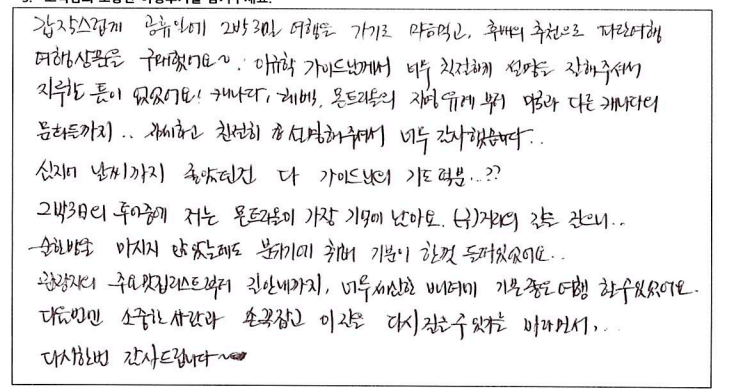 갑작스럽게 공휴일에 2박3일 여행을 가기로 마음먹고, 후배의 추천으로 파란여행
여행상품을 구매했어요~. 이규학 가이드님께서 너무 친절하게 설명을 잘해주셔서
지루할 틈이 없었어요! 캐나다, 퀘벡, 몬트리올의 지명유래부터 미국과 다른 캐나다의
문화들까지.. 자세하고 친절히 설명해주셔서 너무 감사했습니다..
심지어 날씨까지 좋았던건 다 가이드님의 기도 덕분..??
2박3일의 투어중에 저는 몬트리올이 가장 기억에 남아요. 거리의 길을 걸으니..
술한방울 마시지 않았는데도 분위기에 취해 기분이 한껏 들떠있었어요..
관광지의 주요맛집리스트부터 길안내까지, 너무세심한 배려에 기분좋은여행 할수있었어요.
다음번엔 소중한사람과 손꼭잡고 이길을 다시걸을수있기를 바라면서,..
다시한번 감사드립니다~